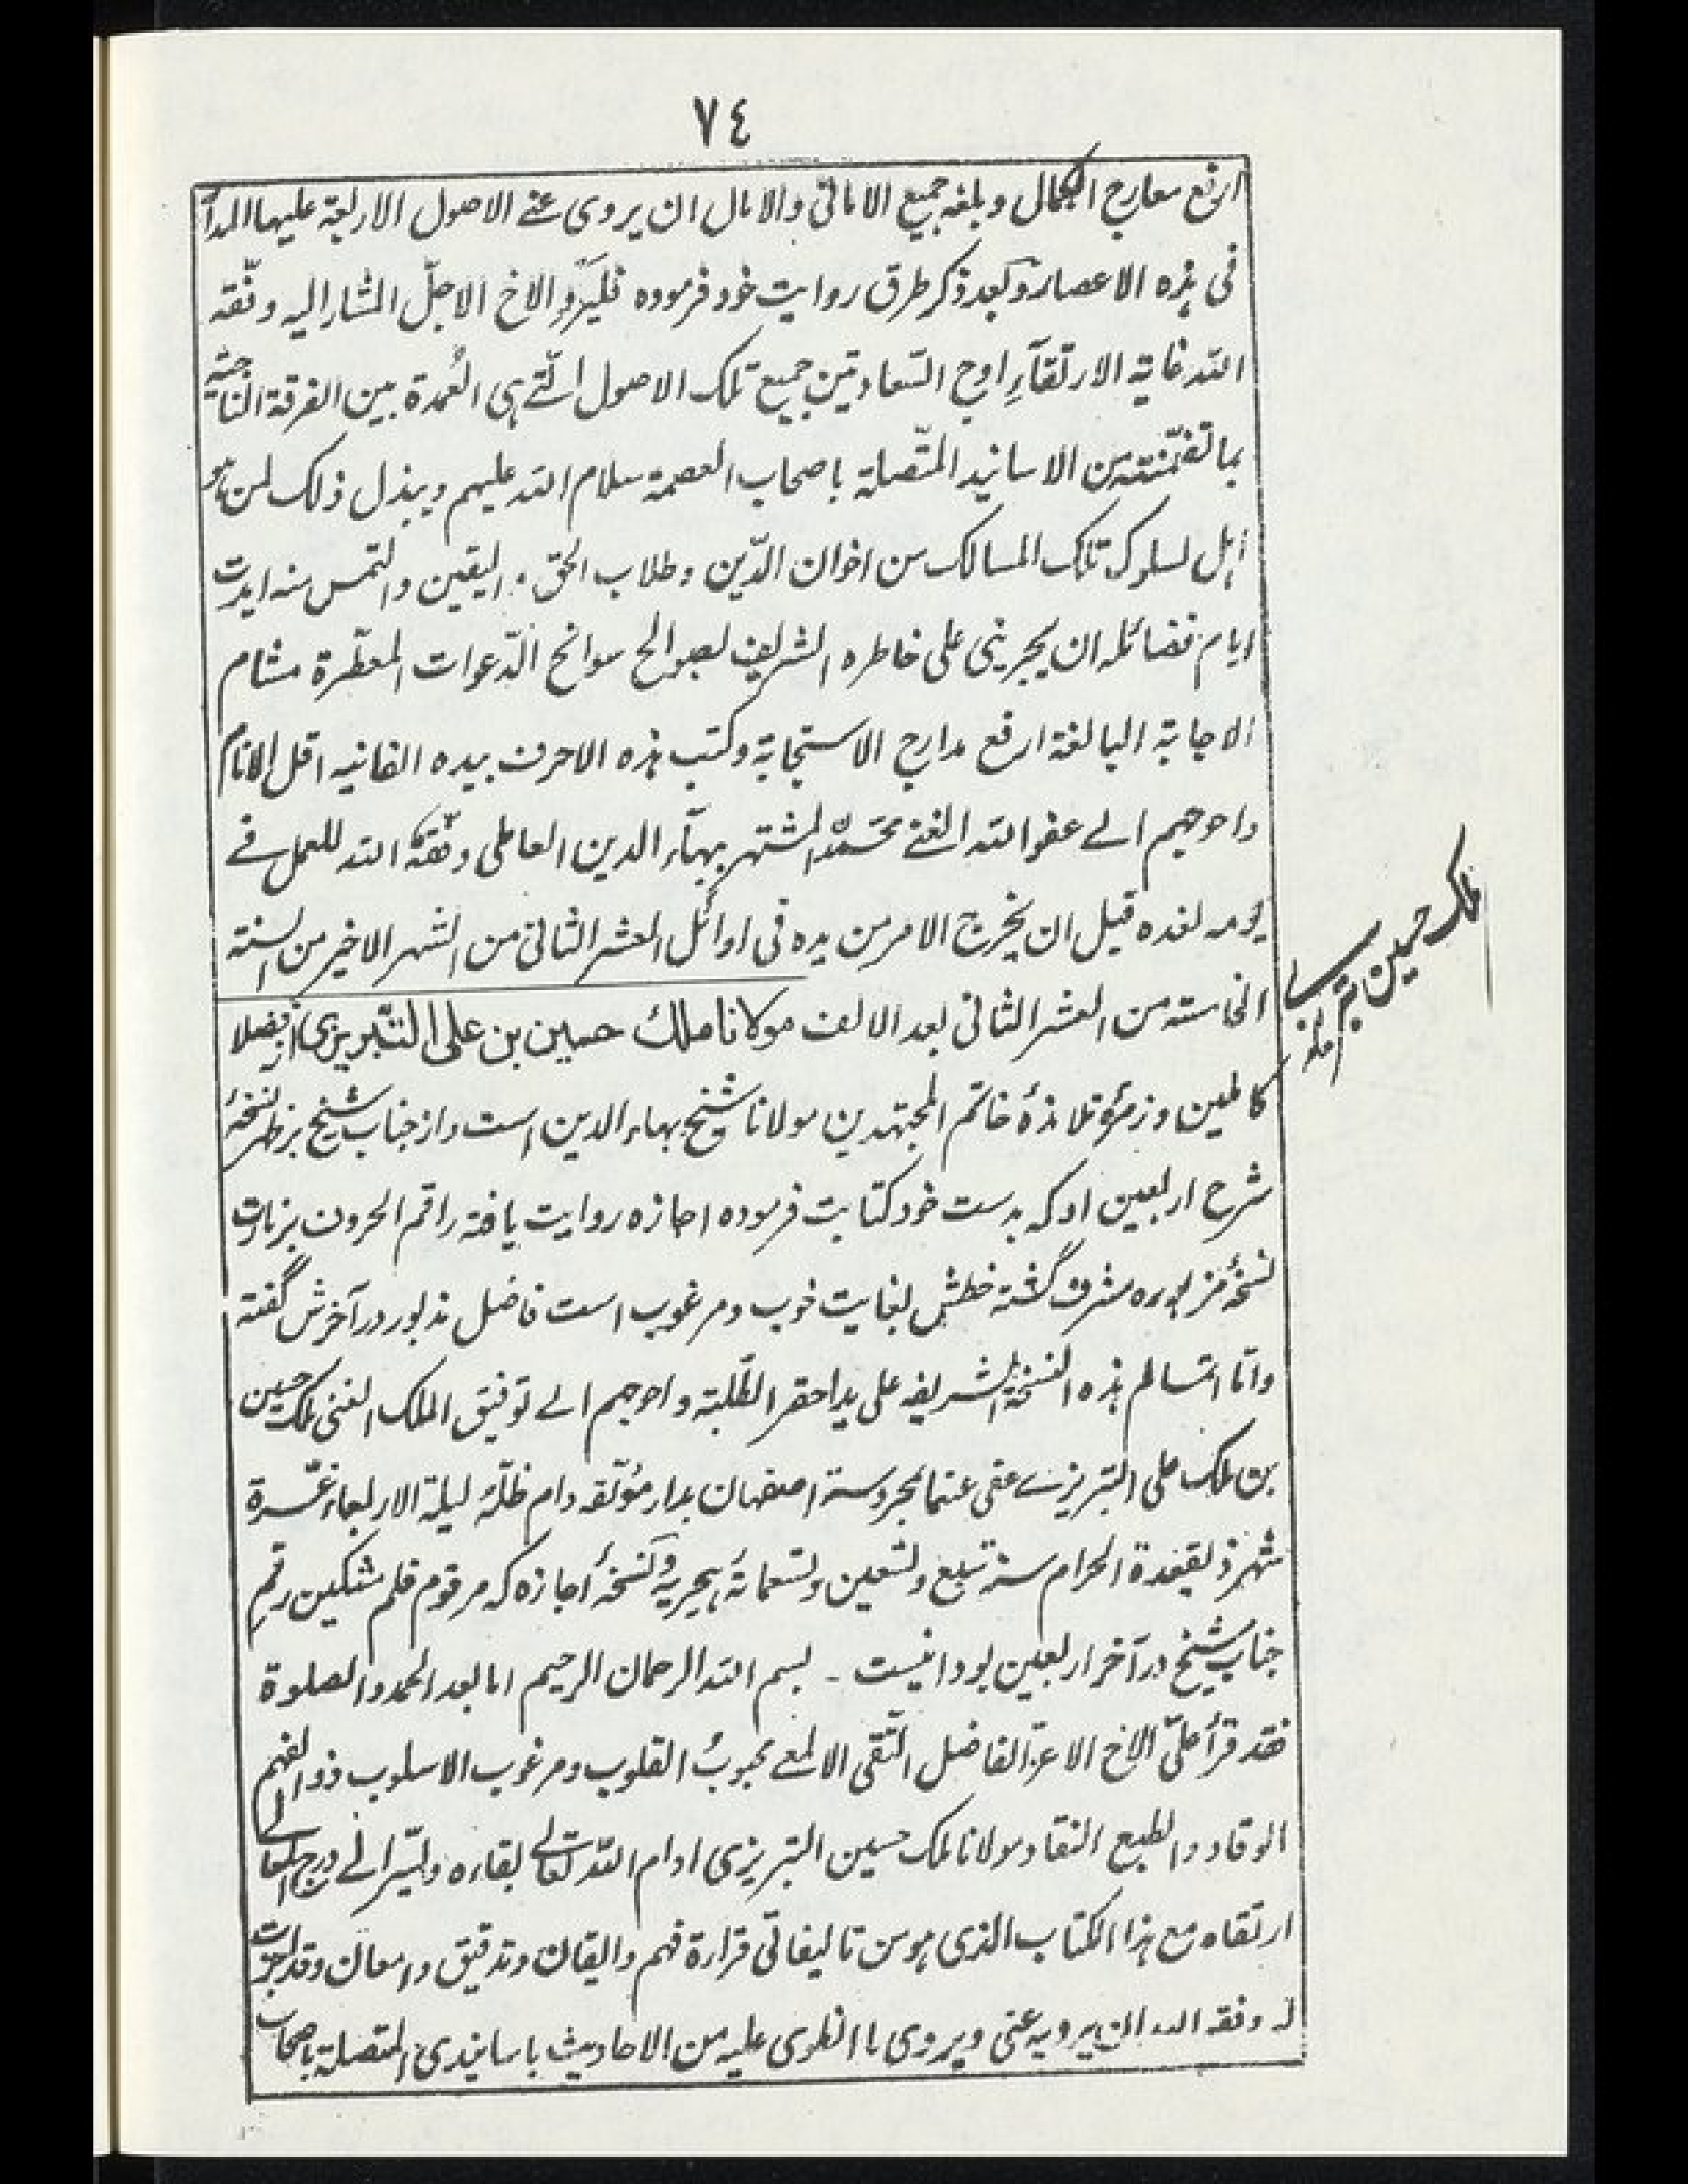 ٧٤
ارفع معارج الکمال وبلغه جمیع الامانی والآمال ان یروی عنی الاصول الاربعة علیها المدار
فی هذه الاعصار وبعد ذکر طرق روایت خود فرموده فلیرو الاخ الاجلّ المشار الیه وفّقه
الله غایة الارتقآءِ اوج السّعادتین جمیع تلک الاصول الّتی هی العُمدة بین الفرقة الناجیة
بما تضمّنته من الاسانید المتّصلة باصحاب العصمة سلام الله علیهم ویبذل ذلک لمن هو
اهل لسلوک تلک المسالک من اخوان الدّین وطلاب الحق والیقین والتمس منه ایدت
ایام فضائله ان یجرینی علی خاطره الشریف لصوالح سوانح الدّعوات المعطّرة مشام
الاجابة البالغة ارفع مدارج الاستجابة وکتب هذه الاحرف بیده الفانیه اقل الانام
واحوجهم الی عفو الله الغنی محمّد المشتهر ببهآء الدین العاملی وفّقه الله للعمل فی
یومه لغده قبل ان یخرج الامر من یده فی اوائل العشر الثانی من الشهر الاخیر من السنة
الخامسة من العشر الثانی بعد الالف مولانا ملک حسین بن علی التّبریزی از فضلا
کاملین وزمرهٔ تلامذهٔ خاتم المجتهدین مولانا شیخ بهاء الدین است واز جناب شیخ بر ظهر نسخهٔ
شرح اربعین او که بدست خود کتابت فرموده اجازه روایت یافته راقم الحروف بزیارت
نسخهٔ مزبوره مشرف گشته خطش بغایت خوب ومرغوب است فاضل مذبور در آخرش گفته
وانّا اتمسالم هذه النسخة الشریفه علی ید احقر الطّلبة واحوجهم الی توفیق الملک الغنی ملک حسین
بن ملک علی التبریزی عفی عنهما بمحروسة اصفهان بدار مؤلّفه دام ظلّه لیلة الاربعاء غرّة
شهر ذیقعدة الحرام سنة تسع وتسعین وتسعمائة هجریه ونسخهٔ اجازه که مرقوم قلم مشکین رقم
جناب شیخ در آخر اربعین بود انیست - بسم الله الرحمان الرحیم اما بعد الحمد والصلوة
فقد قرأ علیّ الاخ الاعزّ الفاضل التّقی الالمعی محبوبُ القلوب ومرغوب الاسلوب ذو الفهم
الوقاد والطبع النقاد مولانا ملک حسین التبریزی ادام الله تعالی بقاءه ویسّر الی درج المعالی
ارتقاه مع هذا الکتاب الذی هو من تالیفاتی قراءة فهم وایقان وتدقیق وامعان وقد اجزت
له وفقه الله ان یرویه عنی ویروی ما انطوی علیه من الاحادیث باسانیدی المتصلة باصحاب
ملک حسین تبریزی